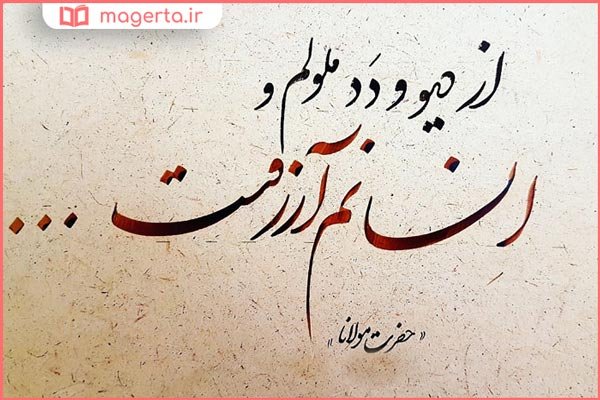 magerta.ir
از دیو و دَد ملولم و
انسانم آرزوست ...
«حضرت مولانا»